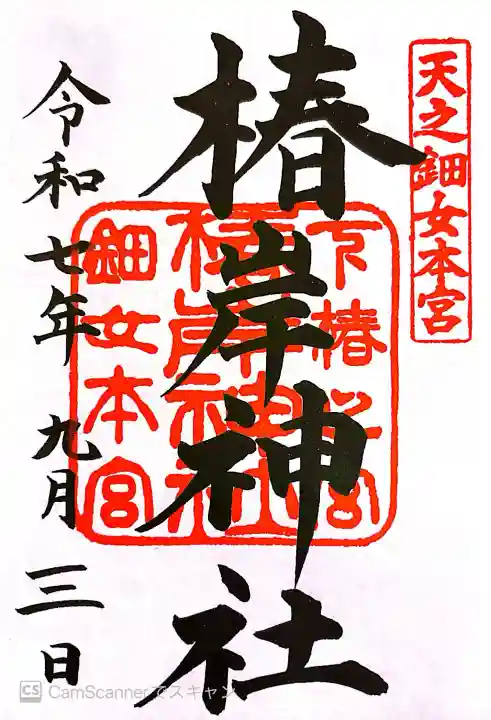 天之鈿女本宮
椿岸神社
下椿
宮
椿岸神社
鈿女本宮
令和七年九月三日
CS CamScannerでスキャン